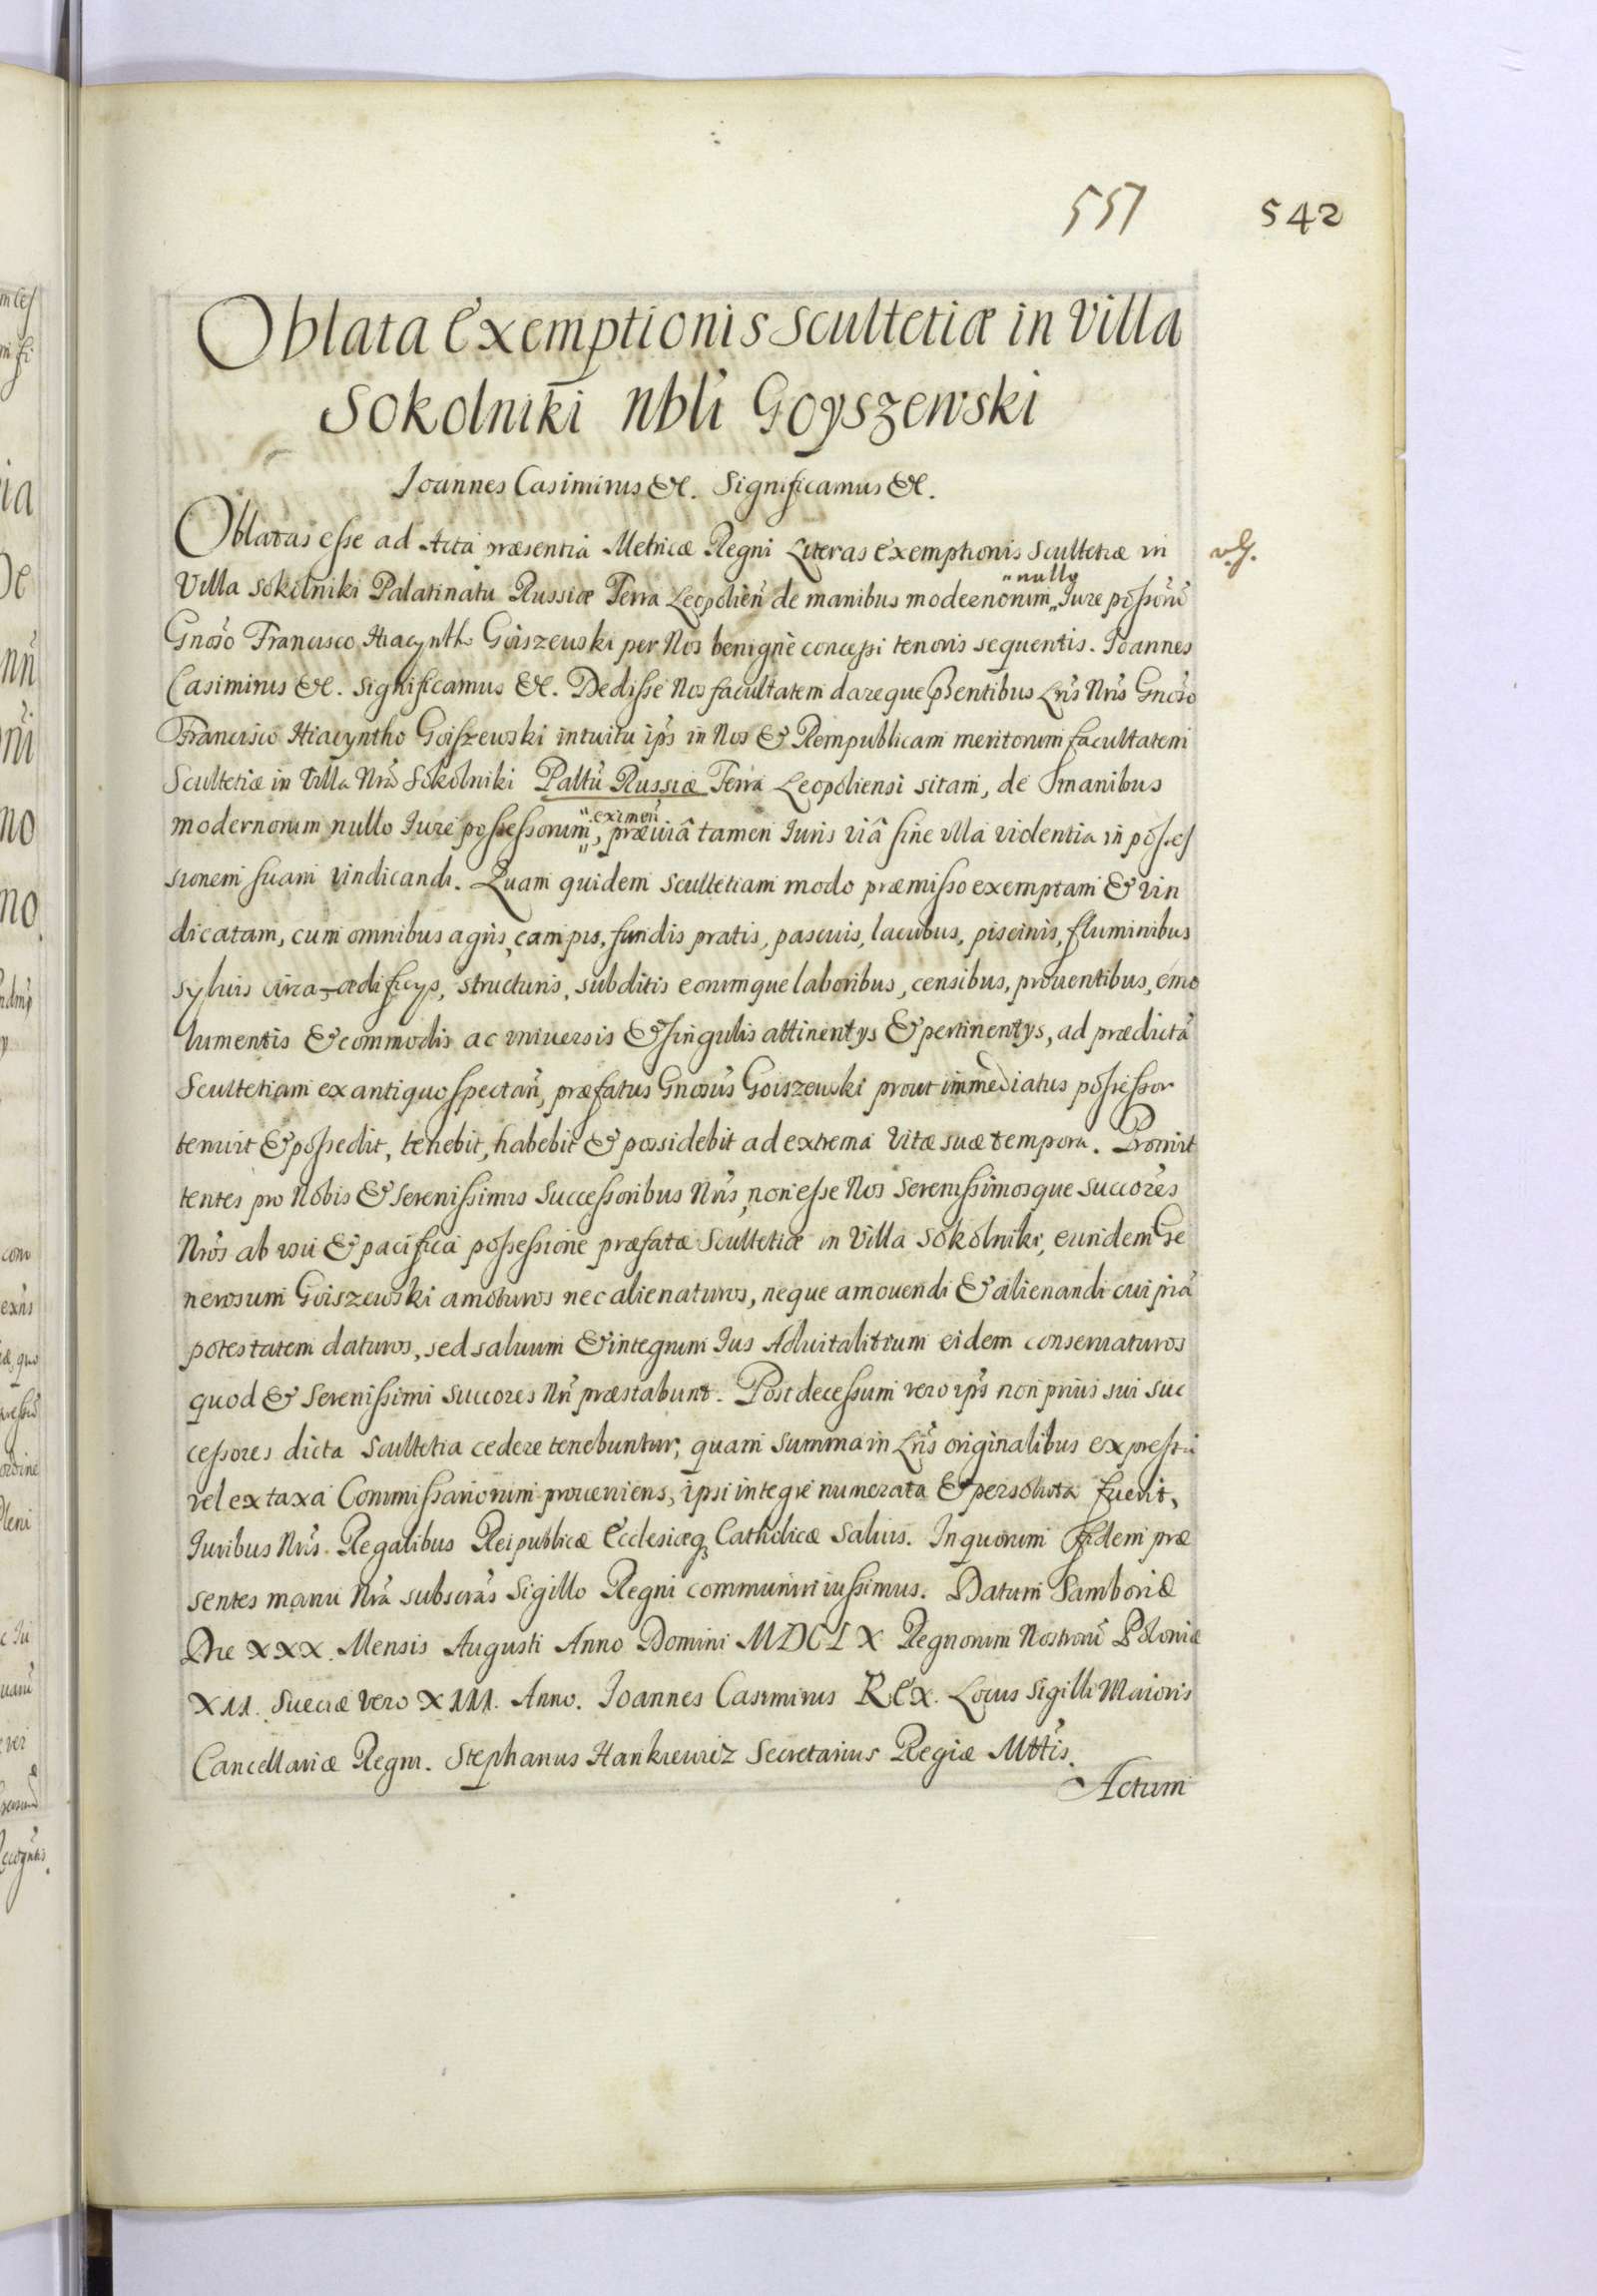 557 542
Oblata Exemptionis Scultetiæ in Villa
Sokolniki Nbli Goyszewski
Ioannes Casimirus &c. Significamus &c.
Oblatas esse ad Acta præsentia Metricæ Regni Literas exemptionis Scultetiæ in
Villa Sokolniki Palatinatu Russiæ Terra Leopolien̄ de manibus modernorum „nullo Iure possorū
Gnoso Francisco Hiacyntho Goiszewski per Nos benignè concessi tenoris sequentis. Ioannes
Casimirus &c. Significamus &c. Dedisse Nos facultatem dareque p̄sentibus Lris Nris Gnoso
Francisco Hiacyntho Goiszewski intuitu ip̄s in Nos & Rempublicam meritorum facultatem
Scultetiæ in Villa Nrā Sokolniki Paltū Russiæ Terra Leopoliensi sitam, de manibus
modernorum nullo Iure possessorum „eximen̄, præuiâ tamen Iuris viâ sine vlla violentia in posses
sionem suam vindicandi. Quam quidem Scultetiam modo præmisso exemptam & vin
dicatam, cum omnibus agris, campis, fundis pratis, pascuis, lacubus, piscinis, fluminibus
syluis ædificys, structuris, subditis eorumque laboribus, censibus, prouentibus, emo
lumentis & commodis ac vniuersis & singulis attinentys & pertinentys, ad prædictā
Scultetiam ex antiquo spectan̄, præfatus Gnosus Goiszewski prout immediatus possessor
tenuit & possedit, tenebit, habebit & possidebit ad extrema vitæ suæ tempora. Promit
tentes pro Nobis & Serenissimis Successoribus Nris, non esse Nos Serenissimosque Succores
Nros ab vsu & pacifica possessione præfatæ Scultetiæ in Villa Sokolniki, eundem Ge
nerosum Goiszewski amoturos nec alienaturos, neque amouendi & alienandi cuipiā
potestatem daturos, sed saluum & integrum Ius Aduitalitium eidem conseruaturos
quod & Serenissimi Succores Nri præstabunt. Post decessum vero ip̄s non prius sui suc
cessores dicta Scultetia cedere tenebuntur, quam summa in Lris originalibus expressa
vel ex taxa Commissariorum proueniens, ipsi integrè numerata & persoluta fuerit,
Iuribus Nris Regalibus Reipublicæ Ecclesiæq Catholicæ saluis. In quorum fidem præ
sentes manu Nrā subscrās Sigillo Regni communiri iussimus. Datum Samboriæ
Die XXX. Mensis Augusti Anno Domini MDCLX Regnorum Nostrorū Poloniæ
XII. Sueciæ vero XIII. Anno. Ioannes Casimirus Rex. Locus Sigilli Maioris
Cancellariæ Regni. Stephanus Hankiewicz Secretarius Regiæ Mttis.
Actum